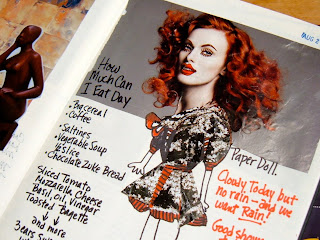 AUG 2
How
Much Can
I Eat Day
• Bas cereal
• Coffee
• Saltines
• Vegetable Soup
• Chocolate Zuke Bread
Sliced Tomato
Mozzarella Cheese
Basil, Oil, Vinegar
Toasted Bagette
and more
3 ears
Paper Doll.
Cloudy Today but
no rain - and we
want Rain!
Good show